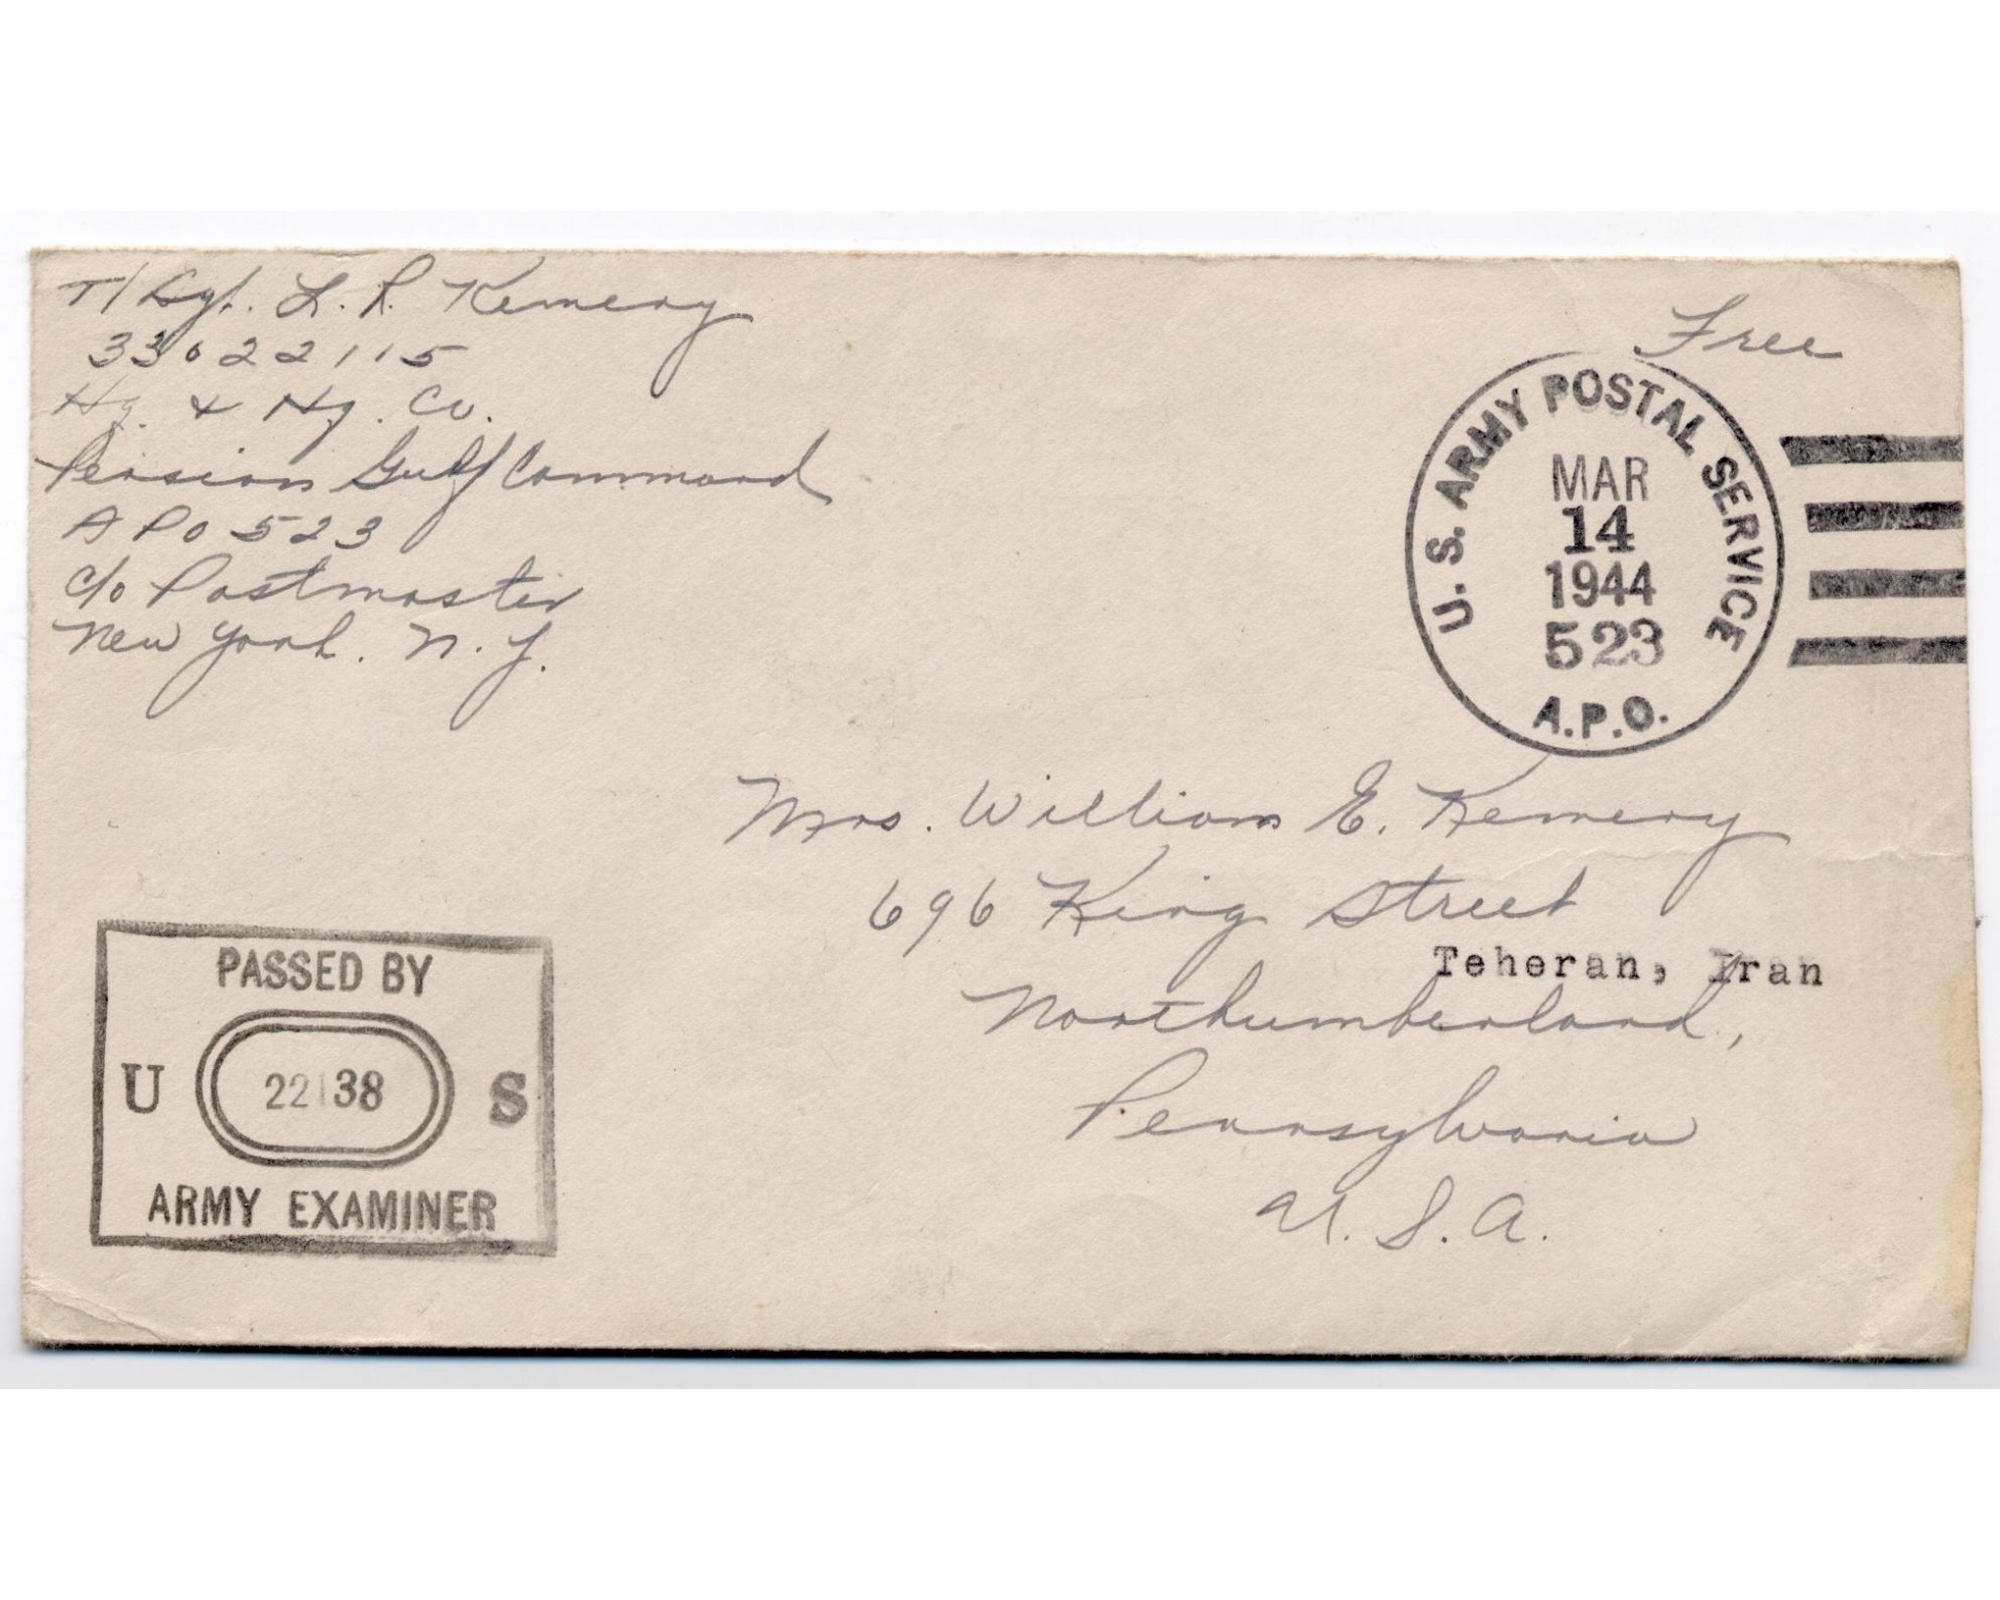 T/Sgt. L. R. Kemery
33022115
Hq. & Hq. Co.
Persian Gulf Command
APO 523
c/o Postmaster
New York. N.Y.
Free
U. S. ARMY POSTAL SERVICE
MAR
14
1944
523
A.P.O.
Mrs. William E. Kemery
696 King Street
Teheran, Iran
Northumberland,
Pennsylvania
U. S. A.
PASSED BY
U 22138 S
ARMY EXAMINER